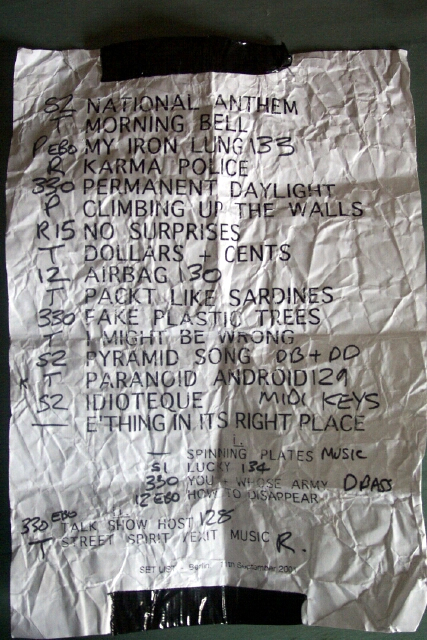 S2 NATIONAL ANTHEM
T MORNING BELL
P EBO MY IRON LUNG 133
R KARMA POLICE
330 PERMANENT DAYLIGHT
P CLIMBING UP THE WALLS
R15 NO SURPRISES
T DOLLARS + CENTS
12 AIRBAG 130
T PACKT LIKE SARDINES
330 FAKE PLASTIC TREES
T I MIGHT BE WRONG
S2 PYRAMID SONG DB + DD
T PARANOID ANDROID 129
S2 IDIOTEQUE MIDI KEYS
— E'THING IN ITS RIGHT PLACE
— SPINNING PLATES MUSIC
S1 LUCKY 134
330 YOU + WHOSE ARMY
12 EBO HOW TO DISAPPEAR
330 EBO TALK SHOW HOST 128
T STREET SPIRIT / EXIT MUSIC R.
SET LIST - Berlin September 2001